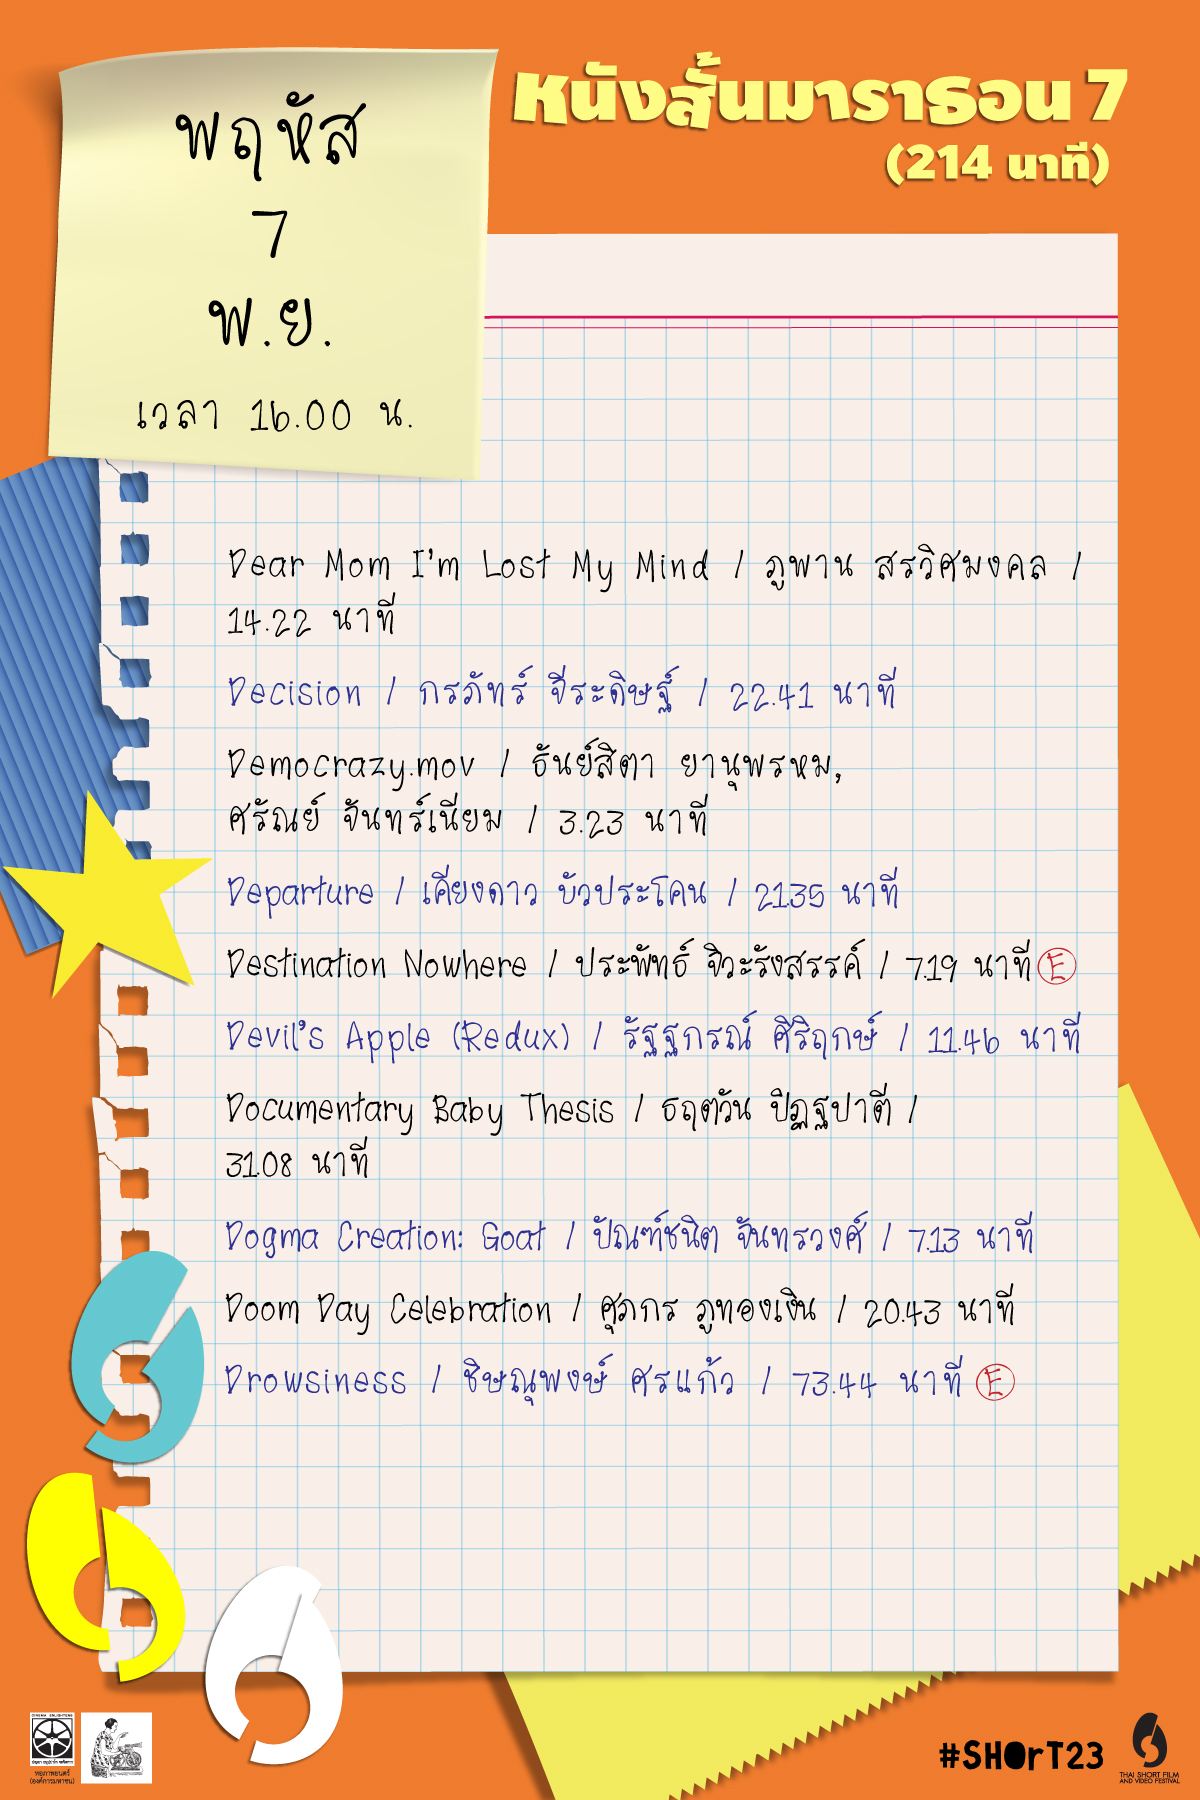 พฤหัส
7
พ.ย.
เวลา 16.00 น.
หนังสั้นมาราธอน 7
(214 นาที)
Dear Mom I'm Lost My Mind / ภูพาน สรวิศมงคล /
14.22 นาที
Decision / กรภัทร์ จีระดิษฐ์ / 22.41 นาที
Democrazy.mov / ธันย์สิตา ยานุพรหม,
ศรัณย์ จันทร์เนียม / 3.23 นาที
Departure / เคียงดาว บัวประโคน / 21.35 นาที
Destination Nowhere / ประพัทธ์ จิวะรังสรรค์ / 7.19 นาที E
Devil's Apple (Redux) / รัฐฐกรณ์ ศิริฤกษ์ / 11.46 นาที
Documentary Baby Thesis / ธฤตวัน ปิฏฐปาตี /
31.08 นาที
Dogma Creation: Goat / ปัณฑ์ชนิต จันทรวงศ์ / 7.13 นาที
Doom Day Celebration / ศุภกร ภูทองเงิน / 20.43 นาที
Drowsiness / ชิษณุพงษ์ ศรแก้ว / 73.44 นาที E
หอภาพยนตร์
(องค์การมหาชน)
#SHOrT23
THAI SHORT FILM
AND VIDEO FESTIVAL